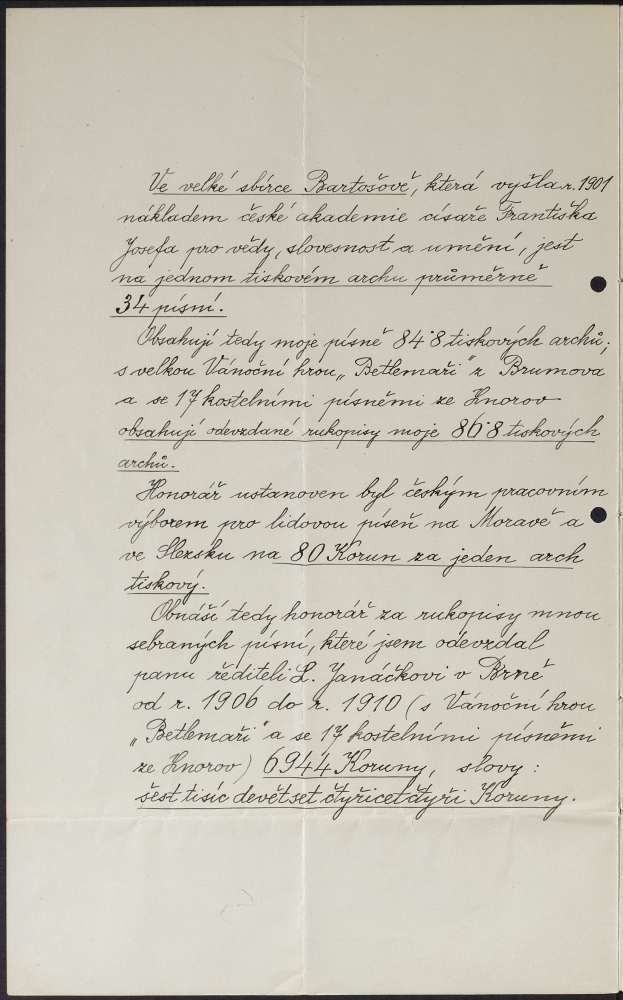 Ve velké sbírce Bartošově, která vyšla r. 1901
nákladem české akademie císaře Františka
Josefa pro vědy, slovesnost a umění, jest
na jednom tiskovém archu průměrně
34 písní.
Obsahují tedy moje písně 84·8 tiskových archů;
s velkou Vánoční hrou „Betlemaři" z Brumova
a se 17 kostelními písněmi ze Hnorov
obsahují odevzdané rukopisy moje 86·8 tiskových
archů.
Honorář ustanoven byl českým pracovním
výborem pro lidovou píseň na Moravě a
ve Slezsku na 80 Korun za jeden arch
tiskový.
Obnáší tedy honorář za rukopisy mnou
sebraných písní, které jsem odevzdal
panu řediteli L. Janáčkovi v Brně
od r. 1906 do r. 1910 (s Vánoční hrou
„Betlemaři" a se 17 kostelními písněmi
ze Hnorov) 6944 Koruny, slovy:
šest tisíc devětset čtyřicet čtyři Koruny.